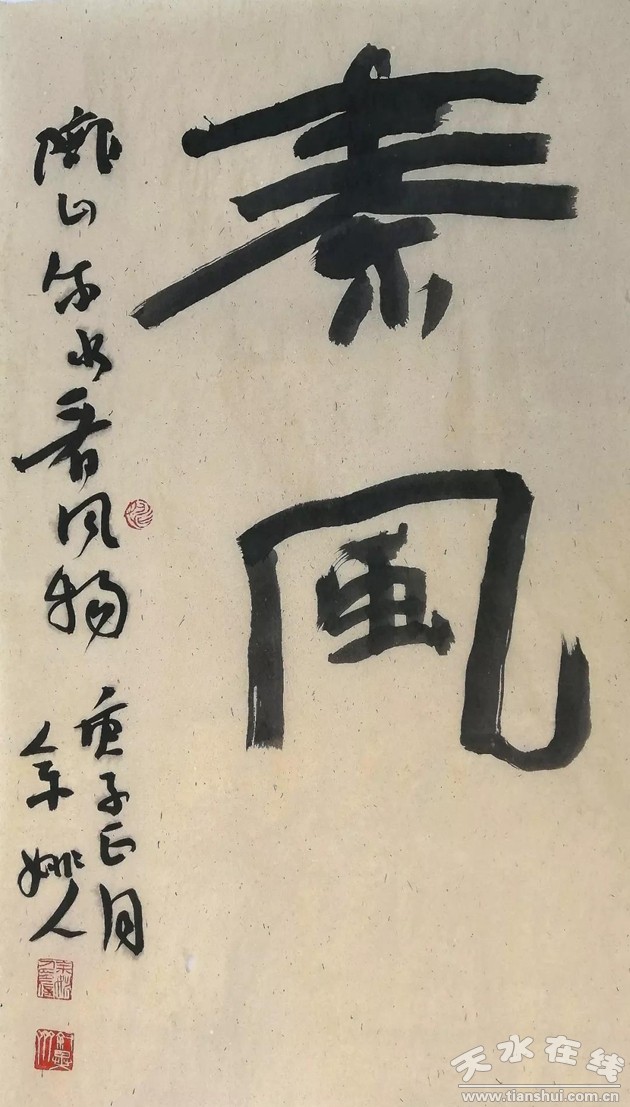 秦風
隴山水看风物
庚子正月
余姚人
天水在线
www.tianshui.com.cn